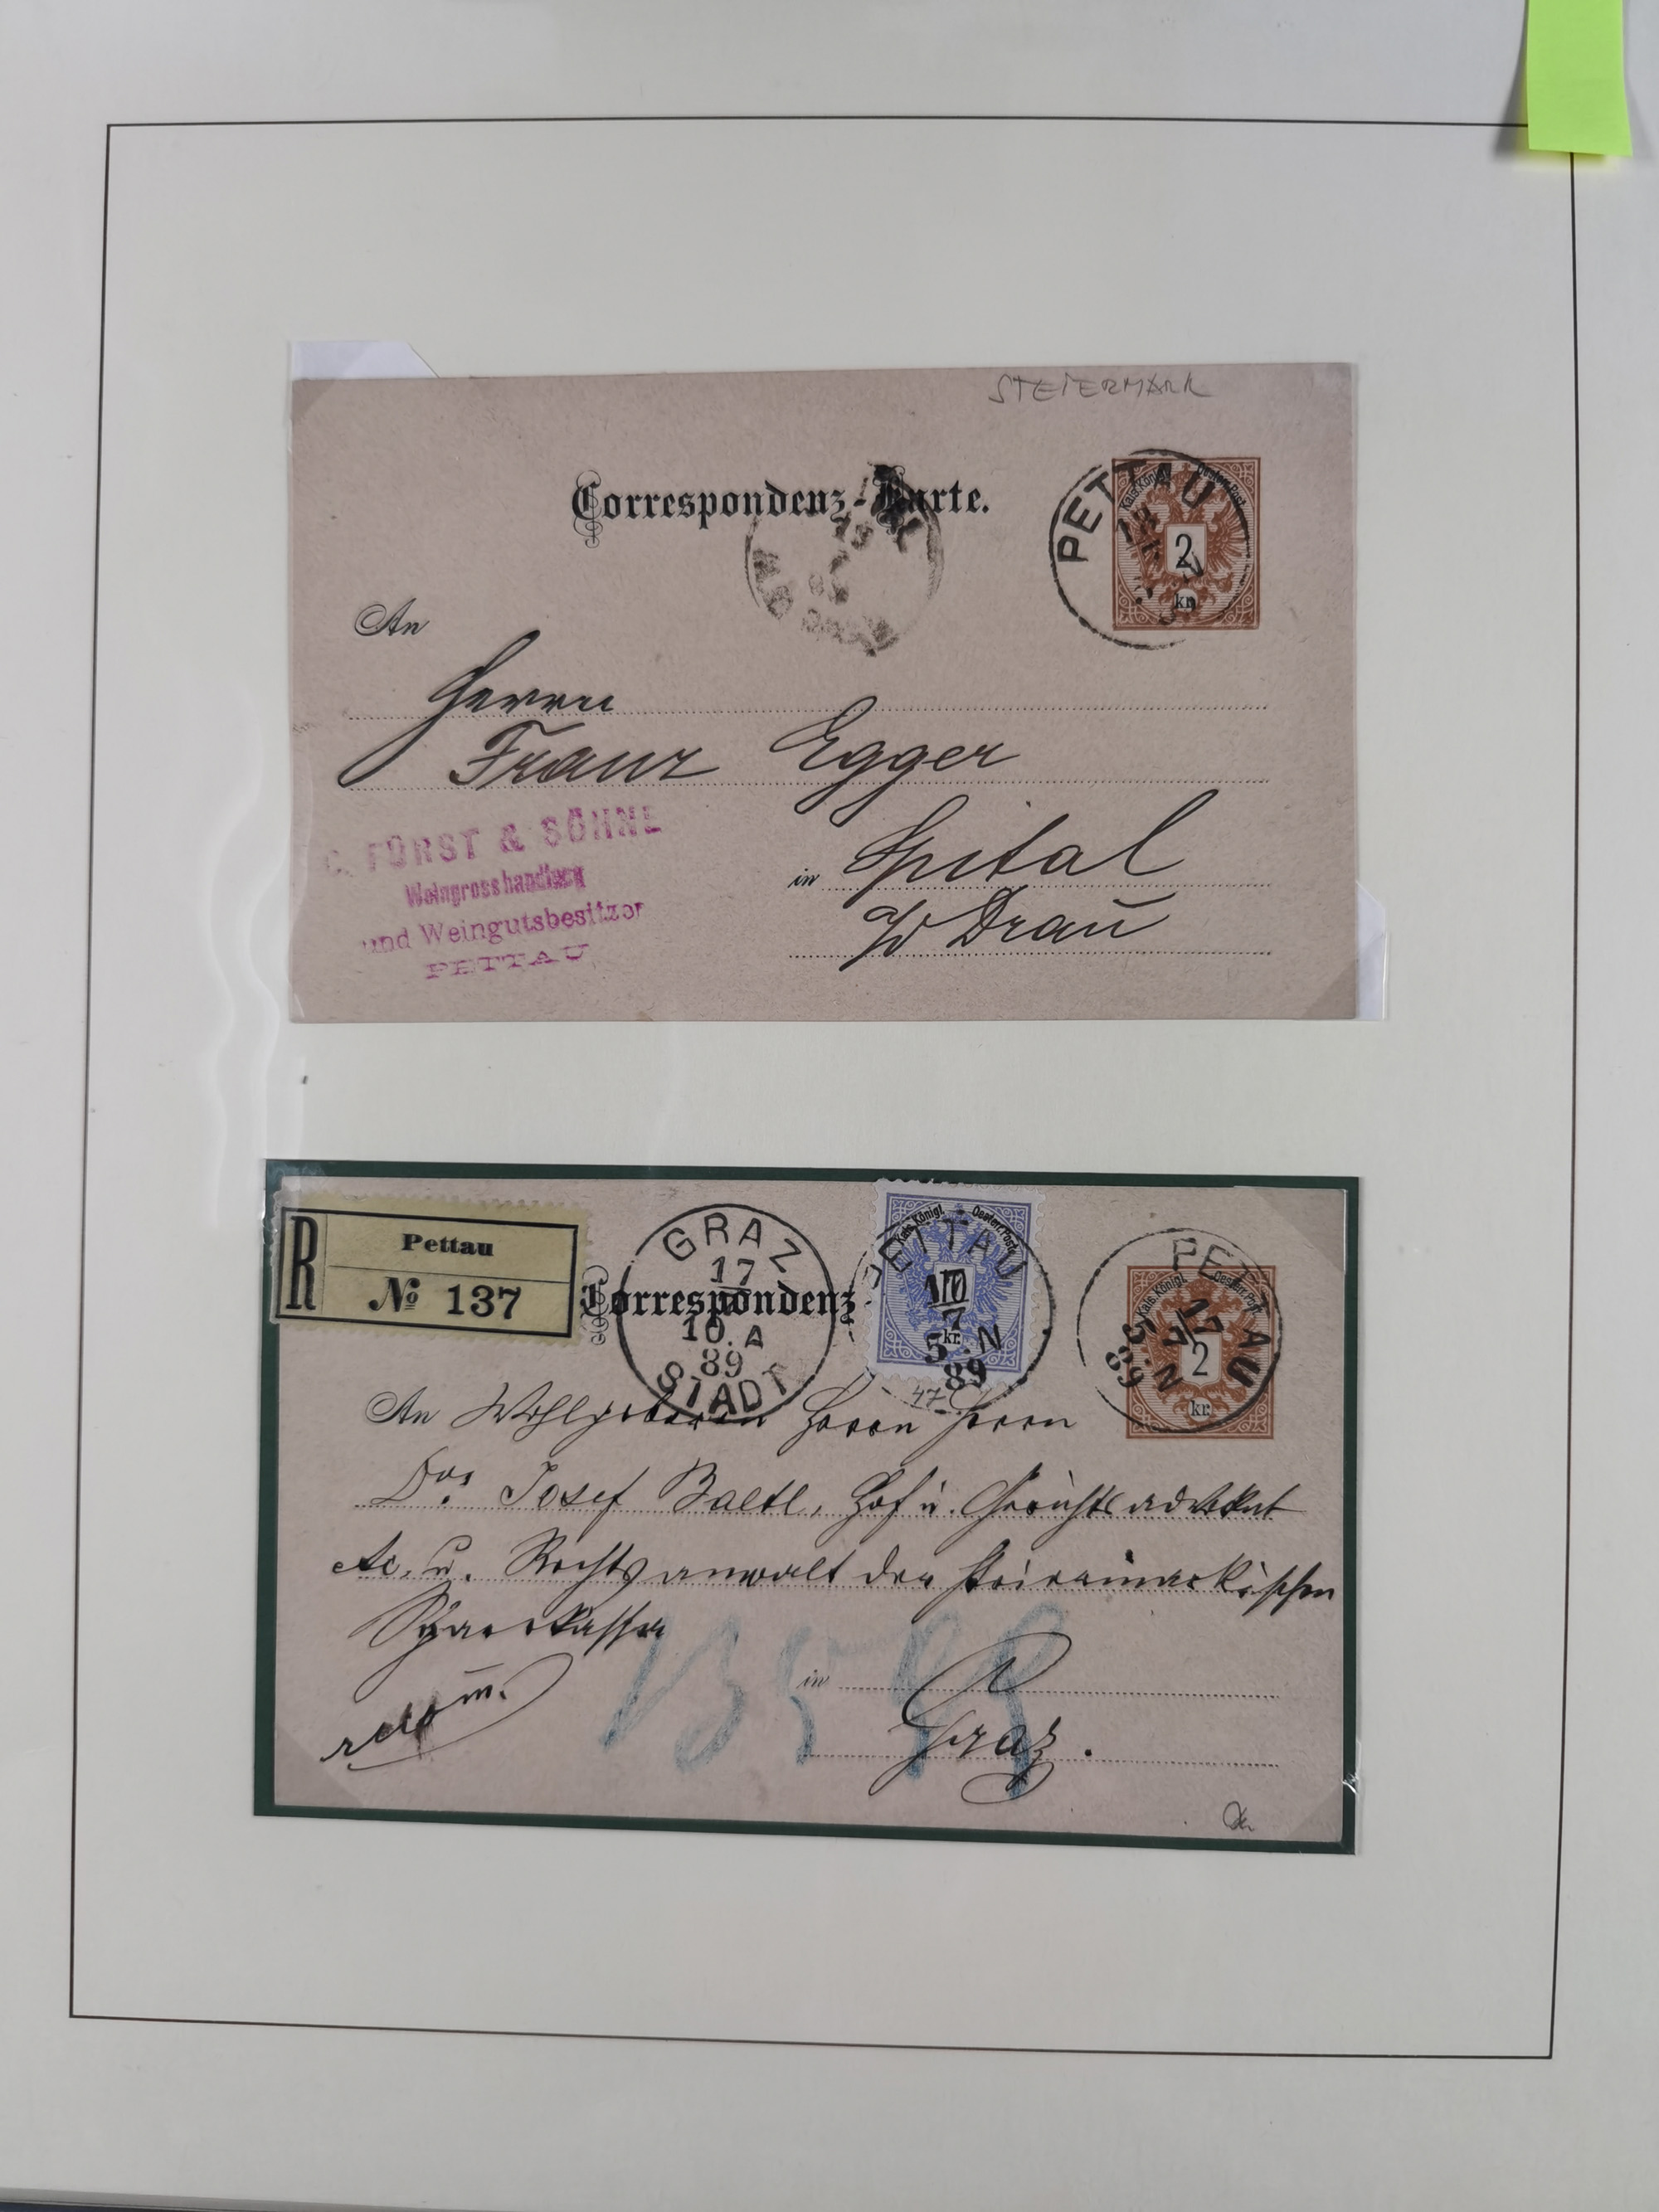 STEIERMARK
Correspondenz-Karte.
PETTAU
Kais. Königl. Oesterr. Post
2
kr.
An
Herrn
Franz Egger
in Spital
a/d Drau
C. FÜRST & SÖHNE
Weingrosshandlung
und Weingutsbesitzer
PETTAU
R
Pettau
No 137
Correspondenz-
GRAZ
17
10. A
89
STADT
Kais. Königl. Oesterr. Post
PETTAU
10
kr.
7
5. N
89
PETTAU
Kais. Königl. Oesterr. Post
2
kr.
47
An Wohlgeboren Herrn Herrn
Josef Hof u. Gerichtsadvokat
u. Rechtsanwalt der steiermärkischen
Sparkasse
recom.
in
Graz.